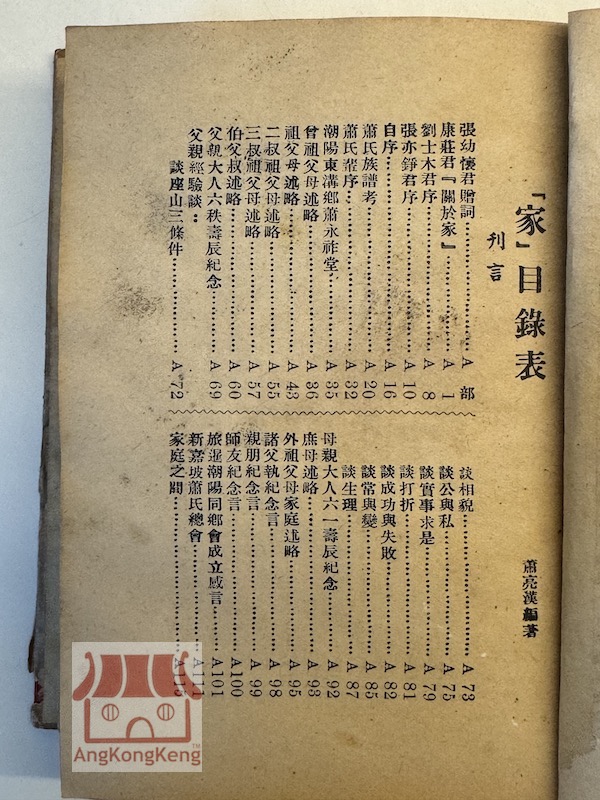 「家」目錄表
蕭亮漢編著
刊言
張幼懷君贈詞………A 部
康莊君『關於家』………A 1
劉士木君序………A 8
張亦錚君序………A 10
自序………A 16
蕭氏族譜考………A 20
蕭氏輩序………A 32
潮陽東溝鄉蕭永祚堂………A 35
曾祖父母述略………A 36
祖父母述略………A 43
二叔祖父母述略………A 55
三叔祖父母述略………A 57
伯父叔述略………A 60
父親大人六秩壽辰紀念………A 69
父親經驗談：
談座山三條件………A 72
談相貌………A 73
談公與私………A 75
談實事求是………A 79
談打折………A 81
談成功與失敗………A 82
談常與變………A 85
談生理………A 87
母親大人六一壽辰紀念………A 92
庶母述略………A 93
外祖父母家庭述略………A 95
諸父執紀念言………A 98
親朋紀念言………A 99
師友紀念言………A100
旅暹潮陽同鄉會成立感言………A101
新嘉坡蕭氏總會………
家庭之間………
AngKongKeng